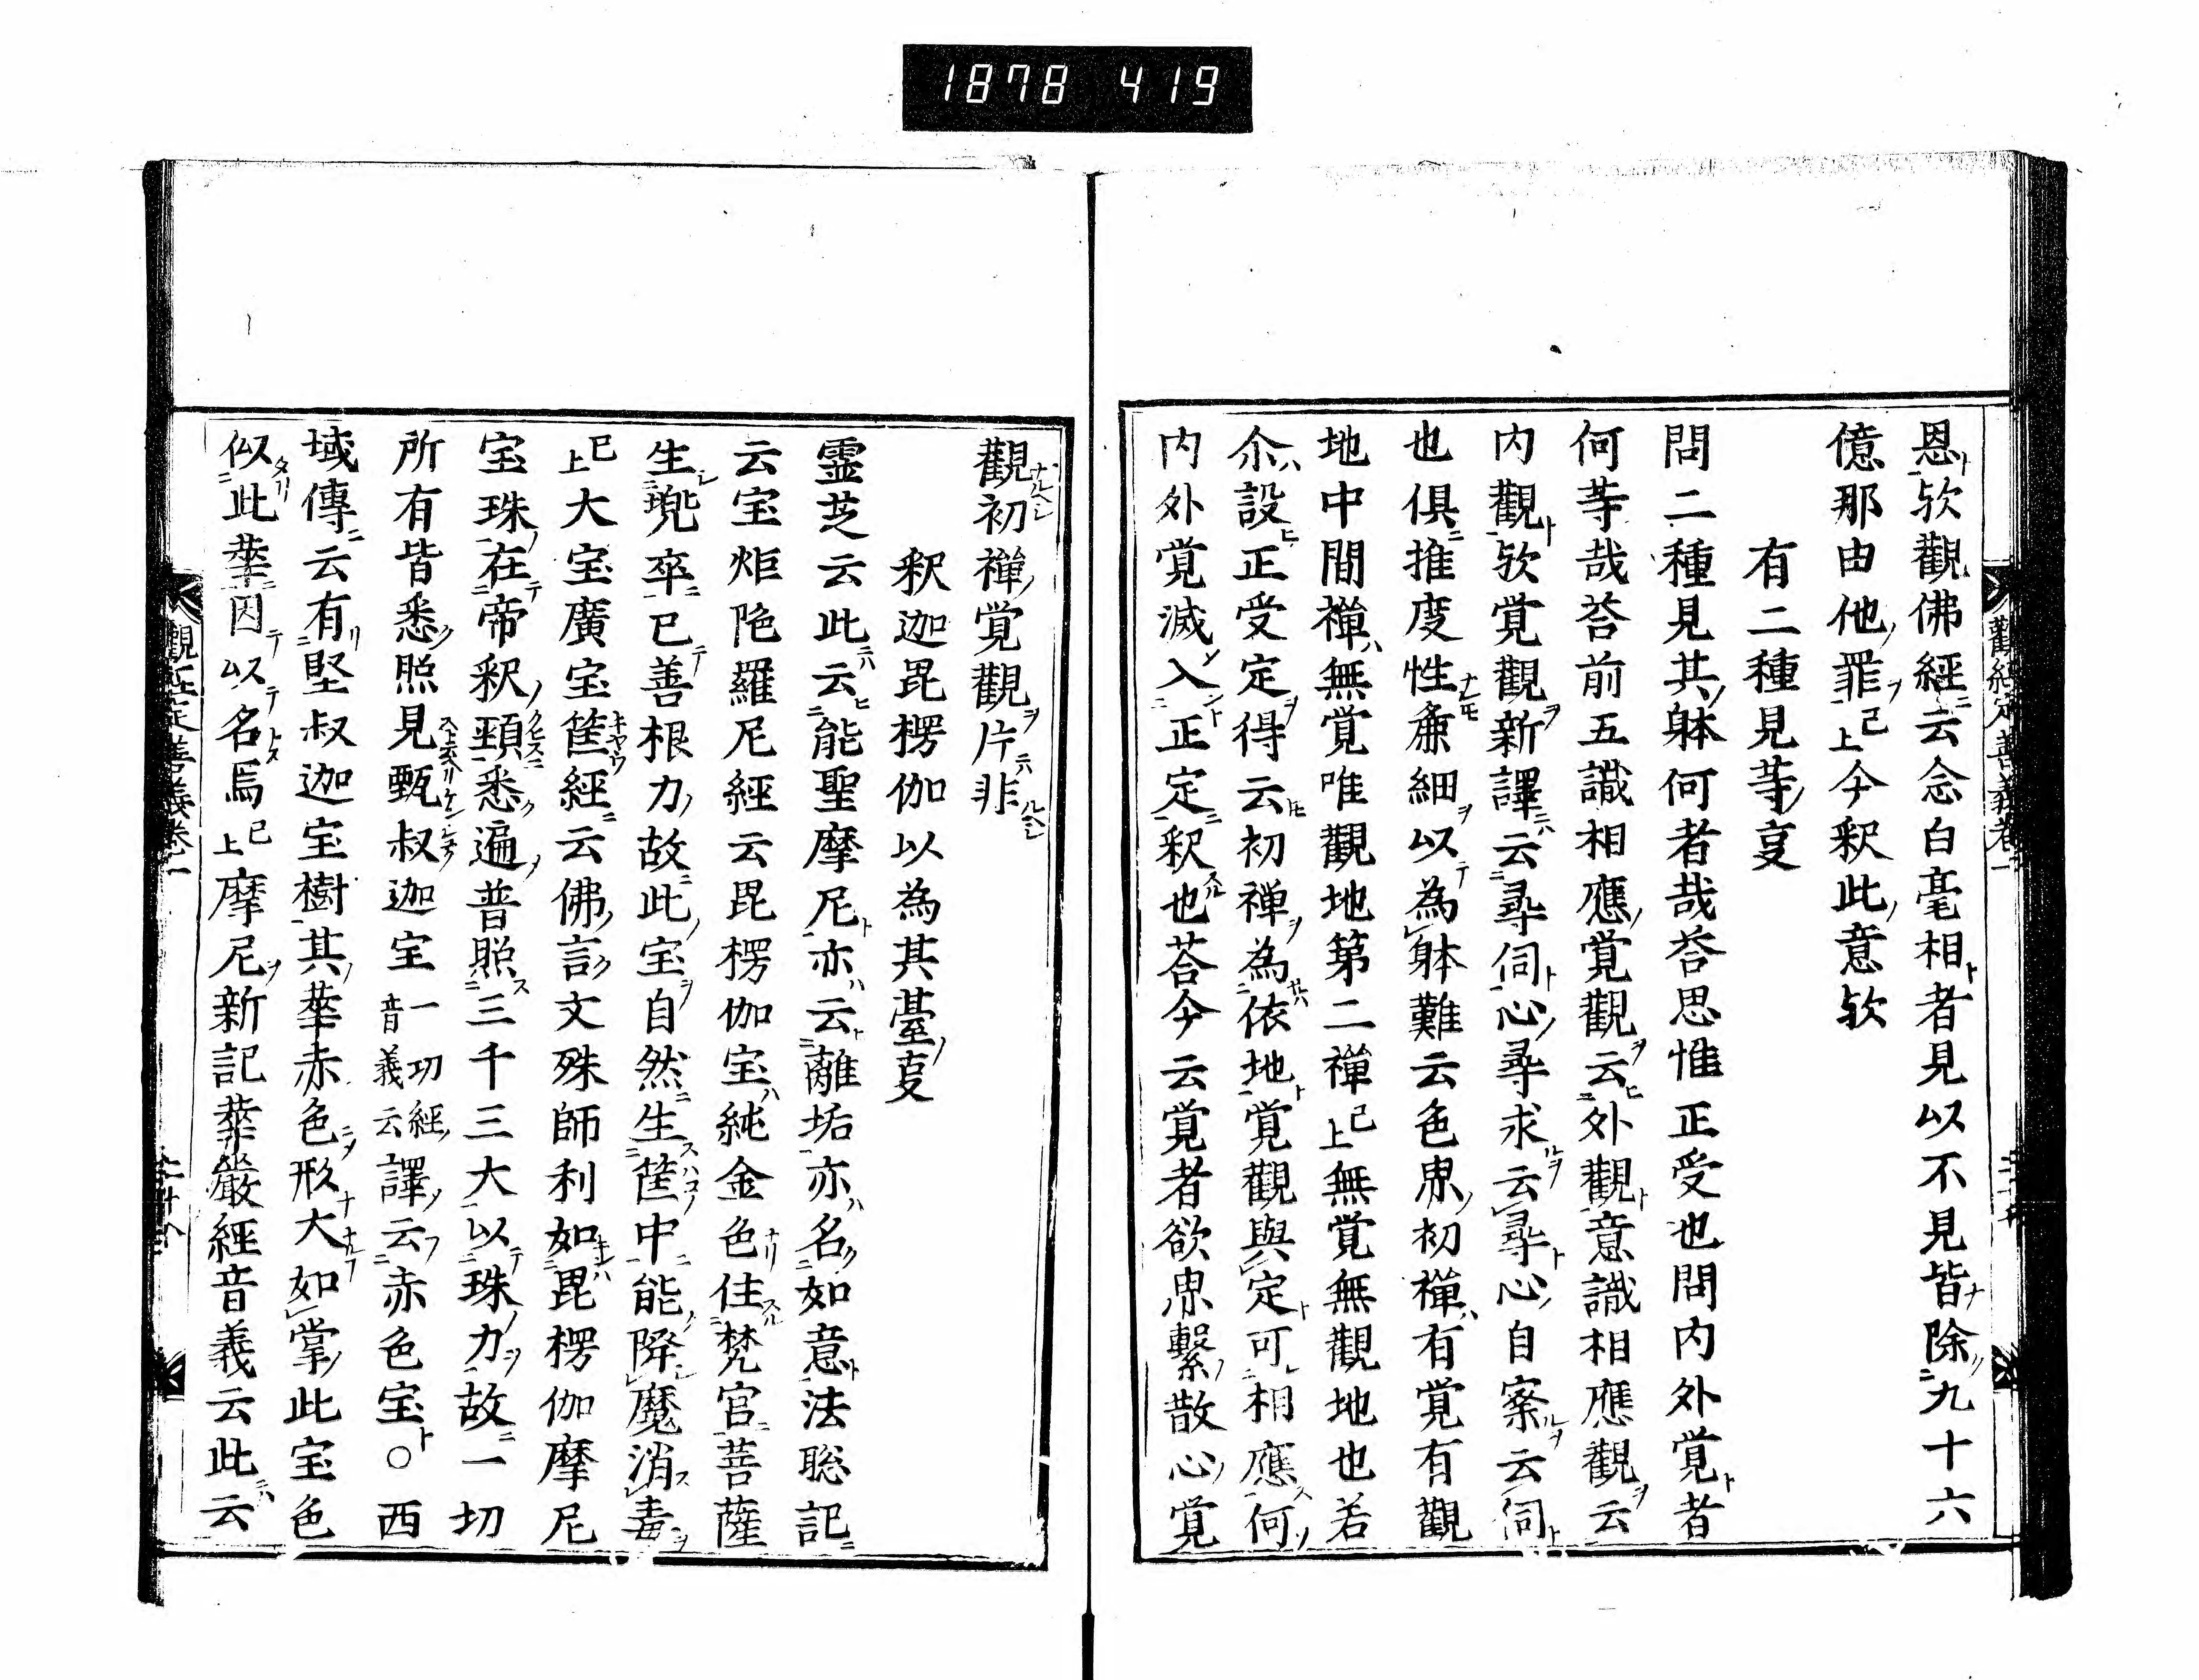 1878 419
恩欤觀佛經云念白毫相者見以不見皆除九十六
億那由他罪已上今釈此意欤
有二種見等㕝
問二種見其躰何者哉荅思惟正受也問内外覚者
何等哉荅前五識相應覚觀云外觀意識相應觀云
内觀欤覚觀新譯云尋伺心尋求云尋心自察云伺
也俱推度性麁細以為躰難云色界初禅有覚有觀
地中間禅無覚唯觀地第二禅已上無覚無觀地也若
尒設正受定得云初禅為依地覚觀與定可相應何
内外覚滅入正定釈也荅今云覚者欲界繫散心覚
觀初禅覚觀片非
釈迦毘楞伽以為其臺㕝
霊芝云此云能聖摩尼亦云離垢亦名如意法聡記
云宝炬陁羅尼經云毘楞伽宝純金色住梵宫菩薩
生兠卒已善根力故此宝自然生筐中能降魔消毒
已上大宝廣宝筐經云佛言文殊師利如毘楞伽摩尼
宝珠在帝釈頸悉遍普照三千三大以珠力故一切
所有皆悉照見甄叔迦宝一切經音義云譯云赤色宝○西
域傳云有堅叔迦宝樹其華赤色形大如掌此宝色
似此華因以名焉已上摩尼新記華嚴經音義云此云
觀經定善義卷一
觀經定善義卷一